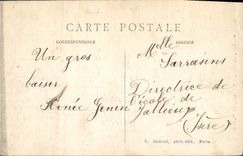 CARTE POSTALE
CORRESPONDANCE
ADRESSE
Un gros
baiser
Renée Genin
Melle
Sarrasins
Directrice de
l'école de
Jallieu
(Isère)
phot.-édit., Paris